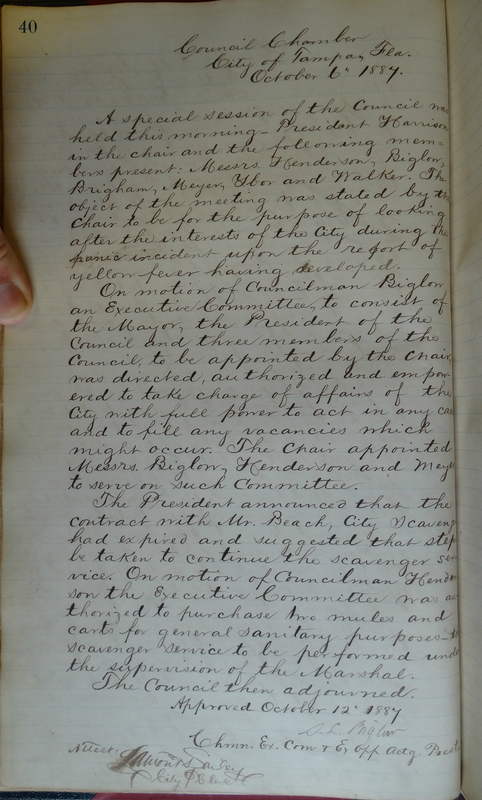 40
Council Chamber
City of Tampa, Fla.
October 6" 1887.
A special session of the Council was
held this morning - President Harrison
in the chair and the following mem-
bers present: Messrs. Henderson, Biglow,
Brigham, Meyer, Ybor and Walker. The
object of the meeting was stated by the
Chair to be for the purpose of looking
after the interests of the City during the
panic incident upon the report of
yellow fever having developed.
On motion of Councilman Biglow
an Executive Committee, to consist of
the Mayor, the President of the
Council and three members of the
Council, to be appointed by the Chair,
was directed, authorized and empow-
ered to take charge of affairs of the
City with full power to act in any case
and to fill any vacancies which
might occur. The Chair appointed
Messrs. Biglow, Henderson and Meyer
to serve on such Committee.
The President announced that the
contract with Mr. Beach, City Scaveng
had expired and suggested that steps
be taken to continue the scavenger ser-
vice. On motion of Councilman Hender
son the Executive Committee was au
thorized to purchase two mules and
carts for general sanitary purposes - the
scavenger service to be performed under
the supervision of the Marshal.
The Council then adjourned.
Approved October 12" 1887
S. L. Biglow
Chmn. Ex. Com & Ex Off Actg. Prest
Attest:
City Clerk